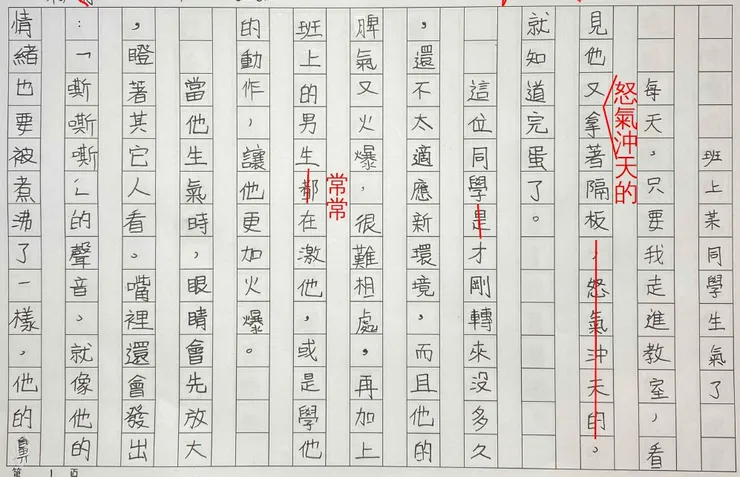 班上某同學生氣了
每天，只要我走進教室，看
怒氣沖天的
見他又拿著隔板，怒氣沖天的。
就知道完蛋了。
這位同學是才剛轉來沒多久
，還不太適應新環境，而且他的
脾氣又火爆，很難相處，再加上
常常
班上的男生都在激他，或是學他
的動作，讓他更加火爆。
當他生氣時，眼睛會先放大
，瞪著其它人看。嘴裡還會發出
：「嘶嘶嘶」的聲音、就像他的
情緒也要被煮沸了一樣，他的鼻
第 1 頁